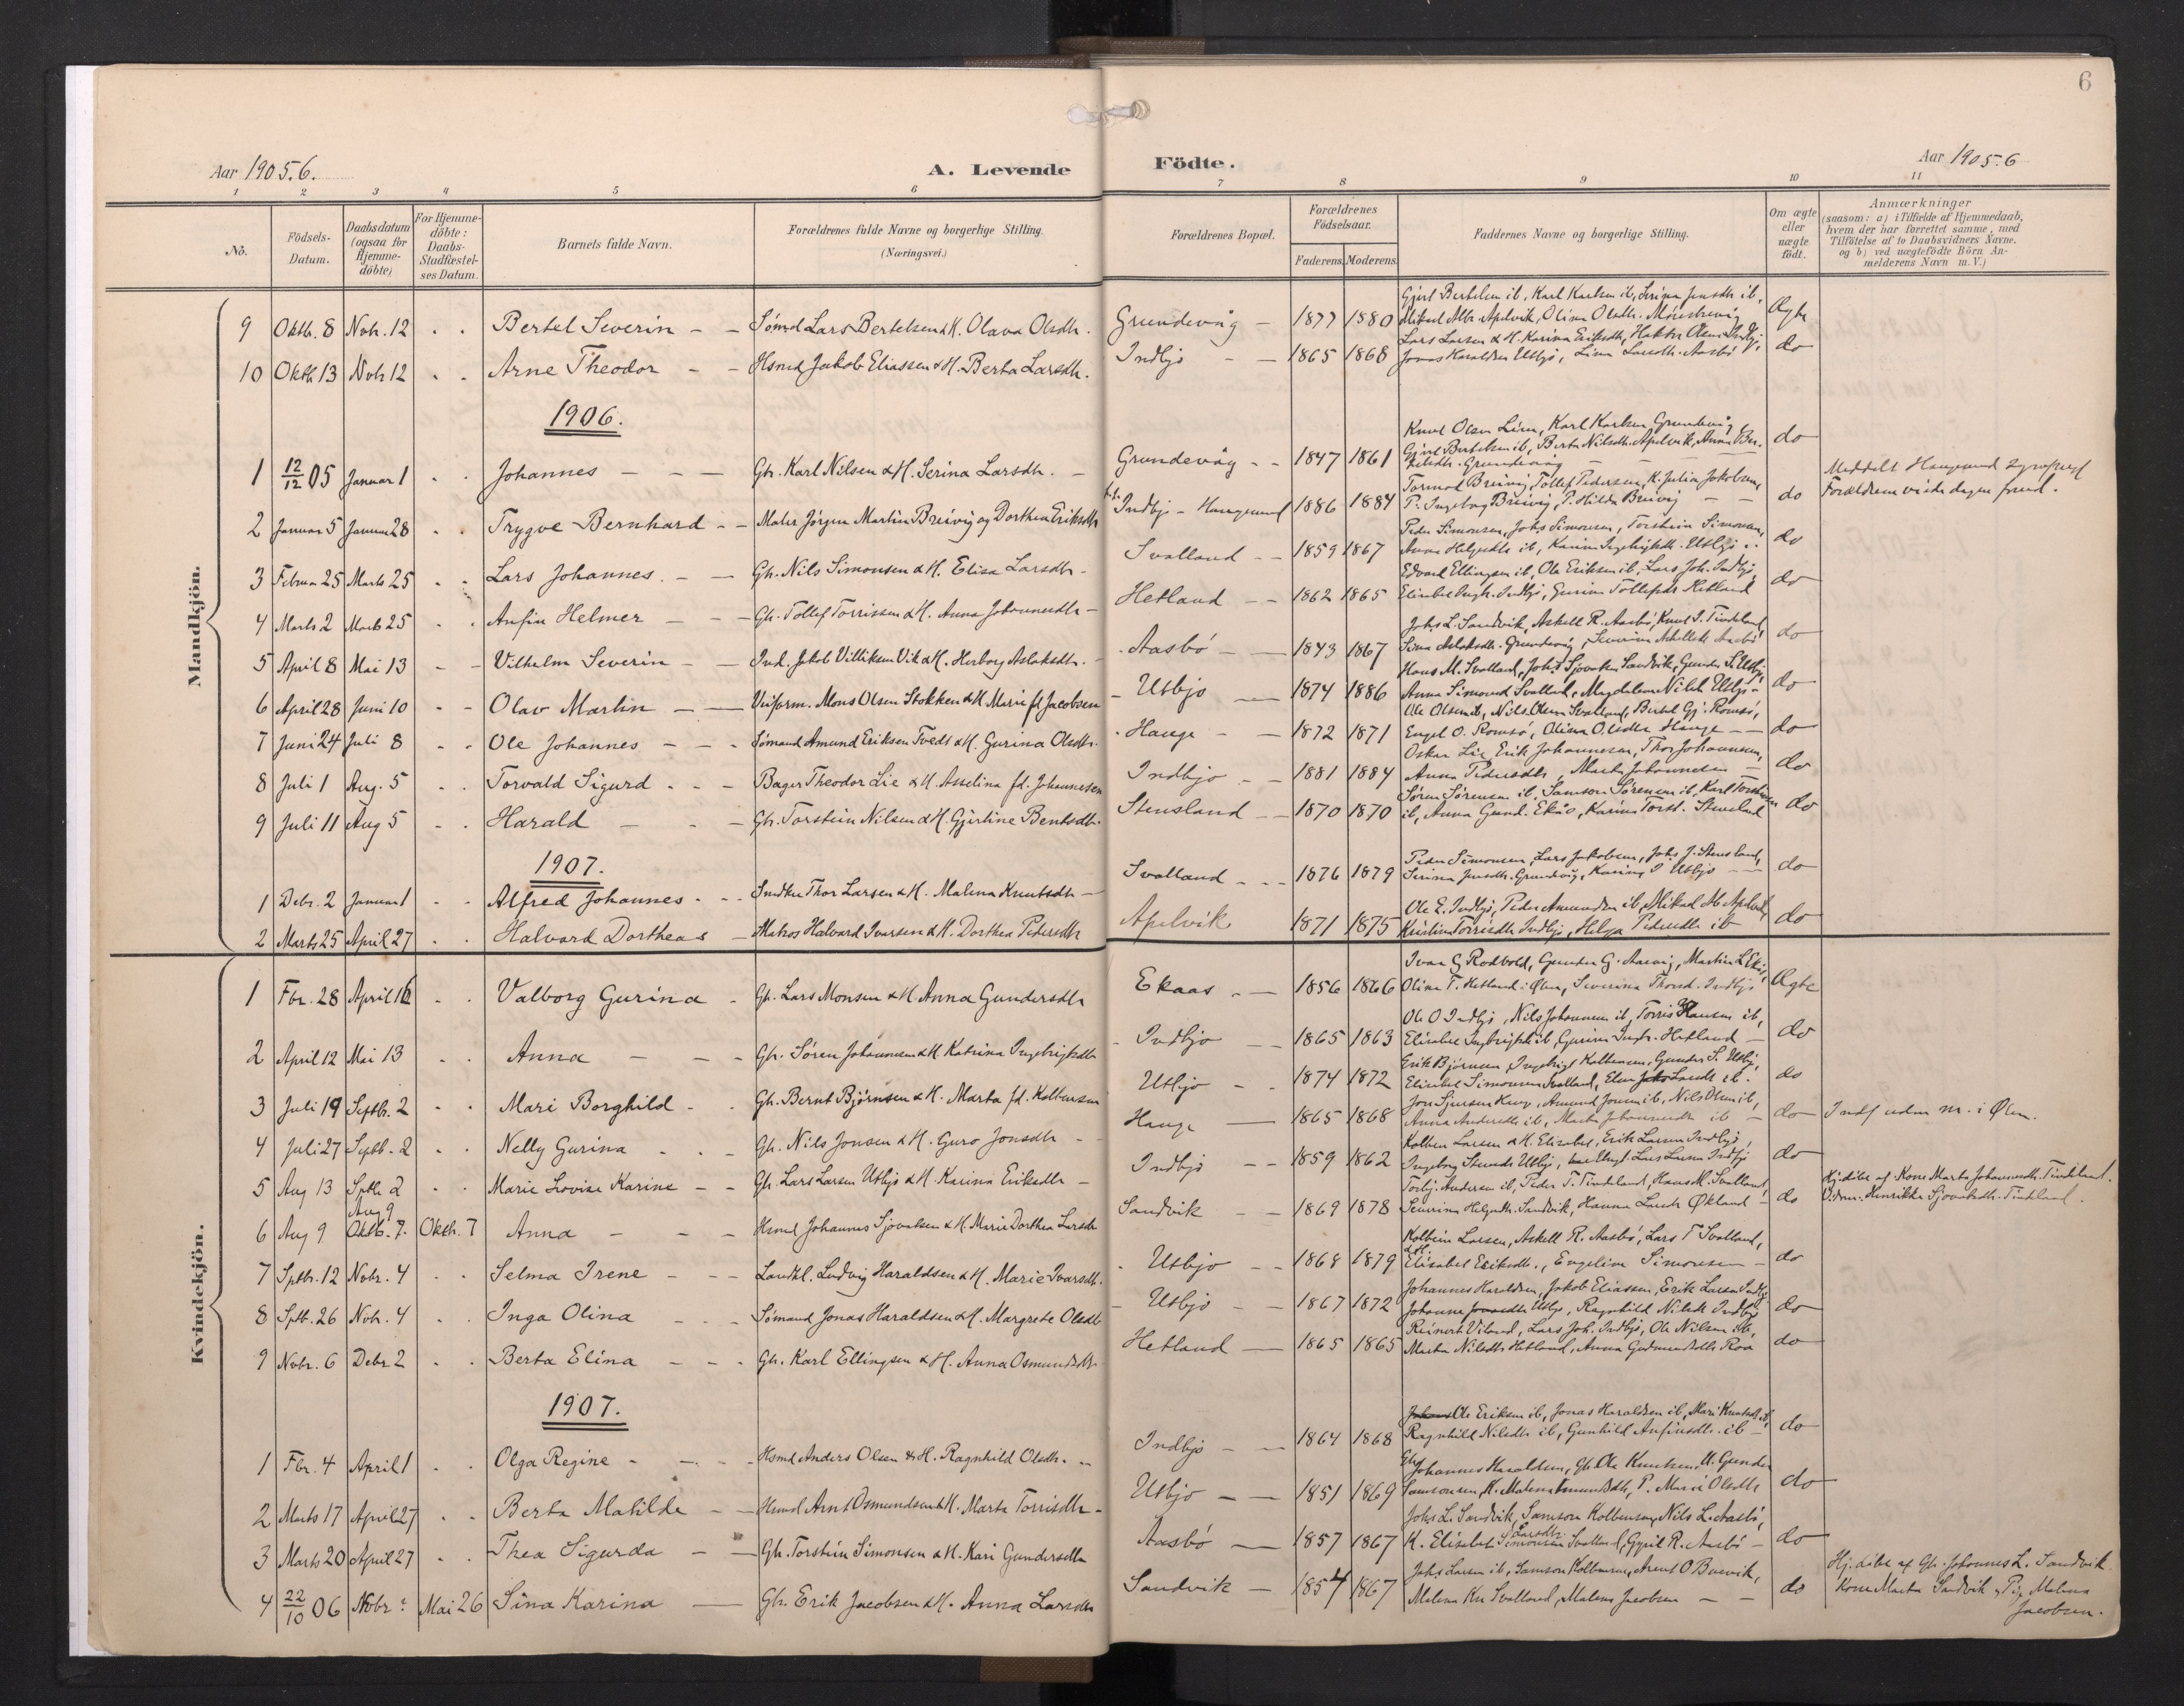 6
Aar 1905.6.
A. Levende Födte.
Aar 1905.6
1 2 3 4 5 6 7 8 9 10 11
No.
Födsels-Datum.
Daabsdatum (ogsaa for Hjemme-döbte)
For Hjemme-döbte: Daabs-Stadfæstel-ses Datum.
Barnets fulde Navn.
Forældrenes fulde Navne og borgerlige Stilling. (Næringsvei.)
Forældrenes Bopæl.
Forældrenes Födselsaar.
Faderens. Moderens.
Faddernes Navne og borgerlige Stilling.
Om ægte eller uægte födt.
Anmærkninger (saasom: a) i Tilfælde af Hjemmedaab, hvem der har forrettet samme, med Tilföielse af to Daabsvidners Navne, og b) ved uægtefödte Börn An-melderens Navn m. V.)
Mandkjön.
9 Oktb. 8 Nvb. 12 Bertel Severin Sömd Lars Bertelsen & H. Olava Olsdtr. Grundevåg 1877 1880 Gjert Bertelsen ib, Karl Karlsen ib, Serina Jensdtr ib, Mikael Albr. Apelvik, Olina Olsdtr. Ægte
10 Oktb 13 Nvb 12 Arne Theodor Hsmd Jakob Eliassen & H. Berta Larsdtr. Indbjo 1865 1868 Lars Larsen & H. Karina Eriksdtr, Jonas Haraldsen Utbjo, Lina Larsdtr. Aasbö do
1906.
1 12/12 05 Januar 1 Johannes Gbr. Karl Nilsen & H. Serina Larsdtr. Grundevåg 1847 1861 Knut Olsen Lien, Karl Karlsen Grundevåg, Gjert Bertelsen ib, Berta Nilsdtr. Apelvik, Anna Grundevåg do
2 Januar 5 Januar 28 Trygve Bernhard Maler Jörgen Martin Breivig og Dorthea Eriksdtr Indbjo - Haugesund 1886 1884 Tormod Breivig, Tollef Pedersen, K. Julia Jakobsen, P. Ingeborg Breivig, P. Hilda Breivig do Meddelt Haugesund Forældrene viede dagen forud.
3 Februar 25 Marts 25 Lars Johannes. Gbr. Nils Simonsen & H. Elisa Larsdtr Svolland 1859 1867 Peder Simonsen, Johs Simonsen, Torstein Simonsen, Anna Helgesdtr ib, Karina Ingebrigtsdtr. Utbjo do
4 Marts 2 Marts 25 Anfin Helmer Gbr. Tollef Torrissen & H. Anna Johannesdtr Hetland 1862 1865 Edvard Ellingsen ib, Ole Eriksen ib, Lars Joh. Indbjo, Elisabet Ingbr. Indbjo, Gurina Tollefsdtr Hetland do
5 April 8 Mai 13 Vilhelm Severin Ind. Jakob Villiksen Vik & H. Herborg Aslaksdtr. Aasbö 1843 1867 Johs L. Sandvik, Askell R. Aasbö, Knut T. Tindeland, Sina Aslaksdtr. Grundevåg, Severina Askellsdtr Aasbö do
6 April 28 Juni 10 Olav Martin Veiform. Mons Olsen Stokken & H. Marie fd Jacobsen Utbjo 1874 1886 Hans M. Svolland, Johs Sjovatsen Sandvik, Gunder S. Utbjo, Anna Simonsd Svolland, Magdalena Nilsd. Utbjo do
7 Juni 24 Juli 8 Ole Johannes Sömand Amund Eriksen Tvedt & H. Gurina Olsdtr. Hauge 1872 1871 Ole Olsen ib, Nils Olsen Svolland, Bertel Gj. Romsö, Engel O. Romsö, Olina Olsdtr Hauge do
8 Juli 1 Aug. 5 Torvald Sigurd Bager Theodor Lie & H. Asselina fd. Johannesen Indbjo 1881 1884 Oskar Lie, Erik Johannesen, Thor Johannesen, Anna Pedersdtr, Marta Johannesen do
9 Juli 11 Aug 5 Harald Gbr. Torstein Nilsen & H. Gjertine Bentsdtr. Stensland 1870 1870 Sören Sörensen ib, Samson Sörensen ib, Karl Torstensen ib, Anna Gund. Ekås, Karina Torst. Stensland do
1907.
1 Debr. 2 Januar 1 Alfred Johannes Snedker Thor Larsen & H. Malena Knutsdtr Svolland 1876 1879 Peder Simonsen, Lars Jakobsen, Johs J. Stensland, Serina Jensdtr. Grundevåg, Karina I Utbjo do
2 Marts 25 April 27 Halvard Dortheas Matros Halvard Ivarsen & H. Dorthea Pedersdtr Apelvik 1871 1875 Ole E. Indbjo, Peder Amundsen ib, Mikael Ab Apelvik, Kristina Torrisdtr Indbjo, Helga Pedersdtr ib do
Kvindekjön.
1 Fbr. 28 April 16 Valborg Gurina Gbr. Lars Monsen & H Anna Gundersdtr Ekaas 1856 1866 Ivar G Rodvold, Gunder G. Aarvig, Martin L Ekås, Olina T. Hetland i Ølen, Severina Thorsd. Indbjo Ægte
2 April 12 Mai 13 Anna Gbr. Søren Johannesen & H Katrina Ingebrigtsdtr Indbjo 1865 1863 Ole O Indbjo, Nils Johannesen ib, Torris Hansen ib, Elisabet Ingebrigtsdtr ib, Gurina Ingbr. Hetland do
3 Juli 19 Septb. 2 Mari Borghild Gbr. Bernt Bjørnsen & H. Marta fd. Kolbensen Utbjo 1874 1872 Erik Bjørnsen, Ingebrigt Kolbensen, Gunder S. Utbjo, Elisabet Simonsen Svolland, Elen Larsdtr ib. do
4 Juli 27 Septb. 2 Nelly Gurina Gbr. Nils Jonsen & H. Guro Jonsdtr Hauge 1865 1868 Jon Sjursen Kamp, Amund Jonsen ib, Nils Olsen ib, Anna Andersdtr ib, Marta Johannesdtr ib do Indf uden m. i Ølen.
5 Aug 13 Sptb 2 Marie Lovise Karine Gbr. Lars Larsen Utbjo & H. Karina Eriksdtr Indbjo 1859 1862 Kolben Larsen & H. Elisabet, Erik Larsen Indbjo, Ingeborg Utbjo, Lars Larsen Indbjo do
6 Aug 9 Aug 9 Oktb. 7. Oktb. 7 Anna Hsmd Johannes Sjovatsen & H Marie Dorthea Larsdtr Sandvik 1869 1878 Torbj. Andersen ib, Peder T. Tindeland, Hans M. Svolland, Severina Helgesdtr. Sandvik, Hanna Larsdtr Økland do Hj. döbt af Kone Marta Johannesdtr. Tindeland. Vidner. Henrikke Sjovatsdtr. Tindeland.
7 Sptbr. 12 Nvbr. 4 Selma Irene Landhl. Ludvig Haraldsen & H. Marie Ivarsdtr. Utbjo 1868 1879 Kolbein Larsen, Askell R. Aasbö, Lars T Svolland, Elisabet Eriksdtr., Engeline Simonsen do
8 Sptb. 26 Nvbr. 4 Inga Olina Sömand Jonas Haraldsen & H. Margrete Olsdtr Utbjo 1867 1872 Johannes Haraldsen, Jakob Eliassen, Erik Larsen Indbjo, Johanna Utbjo, Ragnhild Nilsdtr Indbjo do
9 Nvbr. 6 Debr 2 Berta Elina Gbr. Karl Ellingsen & H. Anna Osmundsdtr Hetland 1865 1865 Reinert Viland, Lars Joh. Indbjo, Ole Nilsen ib, Marta Nilsdtr Hetland, Anna Gudmundsdtr Roa do
1907.
1 Fbr. 4 April 1 Olga Regine Hsmd Anders Olsen & H. Ragnhild Olsdtr. Indbjo 1864 1868 Ole Eriksen ib, Jonas Haraldsen ib, Mari Knutsdtr ib, Ragnhild Nilsdtr ib, Gunhild Anfinsdtr. ib do
2 Marts 17 April 27 Berta Matilde Hsmd Arnt Osmundsen & H. Marta Torrisdtr Utbjo 1851 1869 Gbr Johannes Haraldsen, Gbr Ole Knutsen, U. Gunder Samsonsen, K. Malena Amundsdtr, P. Marie Olsdtr do
3 Marts 20 April 27 Thea Sigurda Gbr. Torstein Simonsen & H. Kari Gundersdtr Aasbö 1857 1867 Johs L. Sandvik, Samson Kolbensen, Nils L. Aasbö, K. Elisabet Larsdtr Svolland, Gyril R. Aasbö do
4 22/10 06 Nvbr ? Mai 26 Sina Karina Gbr. Erik Jacobsen & H. Anna Larsdtr Sandvik 1854 1867 Johs Larsen ib, Samson Kolbensen, Arent O Buevik, Malena Kn Svolland, Malena Jacobsen do Hj. döbt af Gbr. Johannes L. Sandvik Kone Marta Sandvik, Pig. Malena Jacobsen.